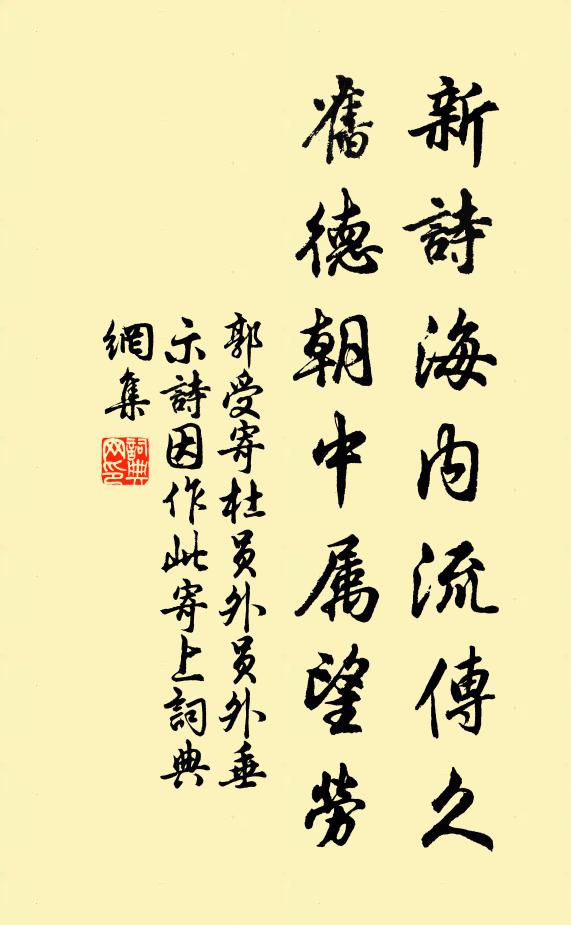 新詩海内流傳久
舊德朝中属望勞
郭受寄杜員外員外垂
示詩因作此寄上詞典
網集
詞典网印